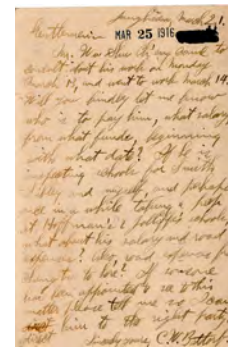 March 21.
Gentlemen:
MAR 25 1916
Mr. Wm. came to
consult about his work on Monday
March 13, and went to work March 14.
Will you kindly let me know
who is to pay him, what salary
from what funds, beginning
with what date? If he is
inspecting whole for Smith,
and myself, and perhaps
once in a while taking a peep
at Hoffman's & schools
what about his salary and road
expenses? Also, road expenses for
to be? If someone
has been appointed to see to this
matter please tell me so I can
him to the right party
Sincerely yours, C.W.